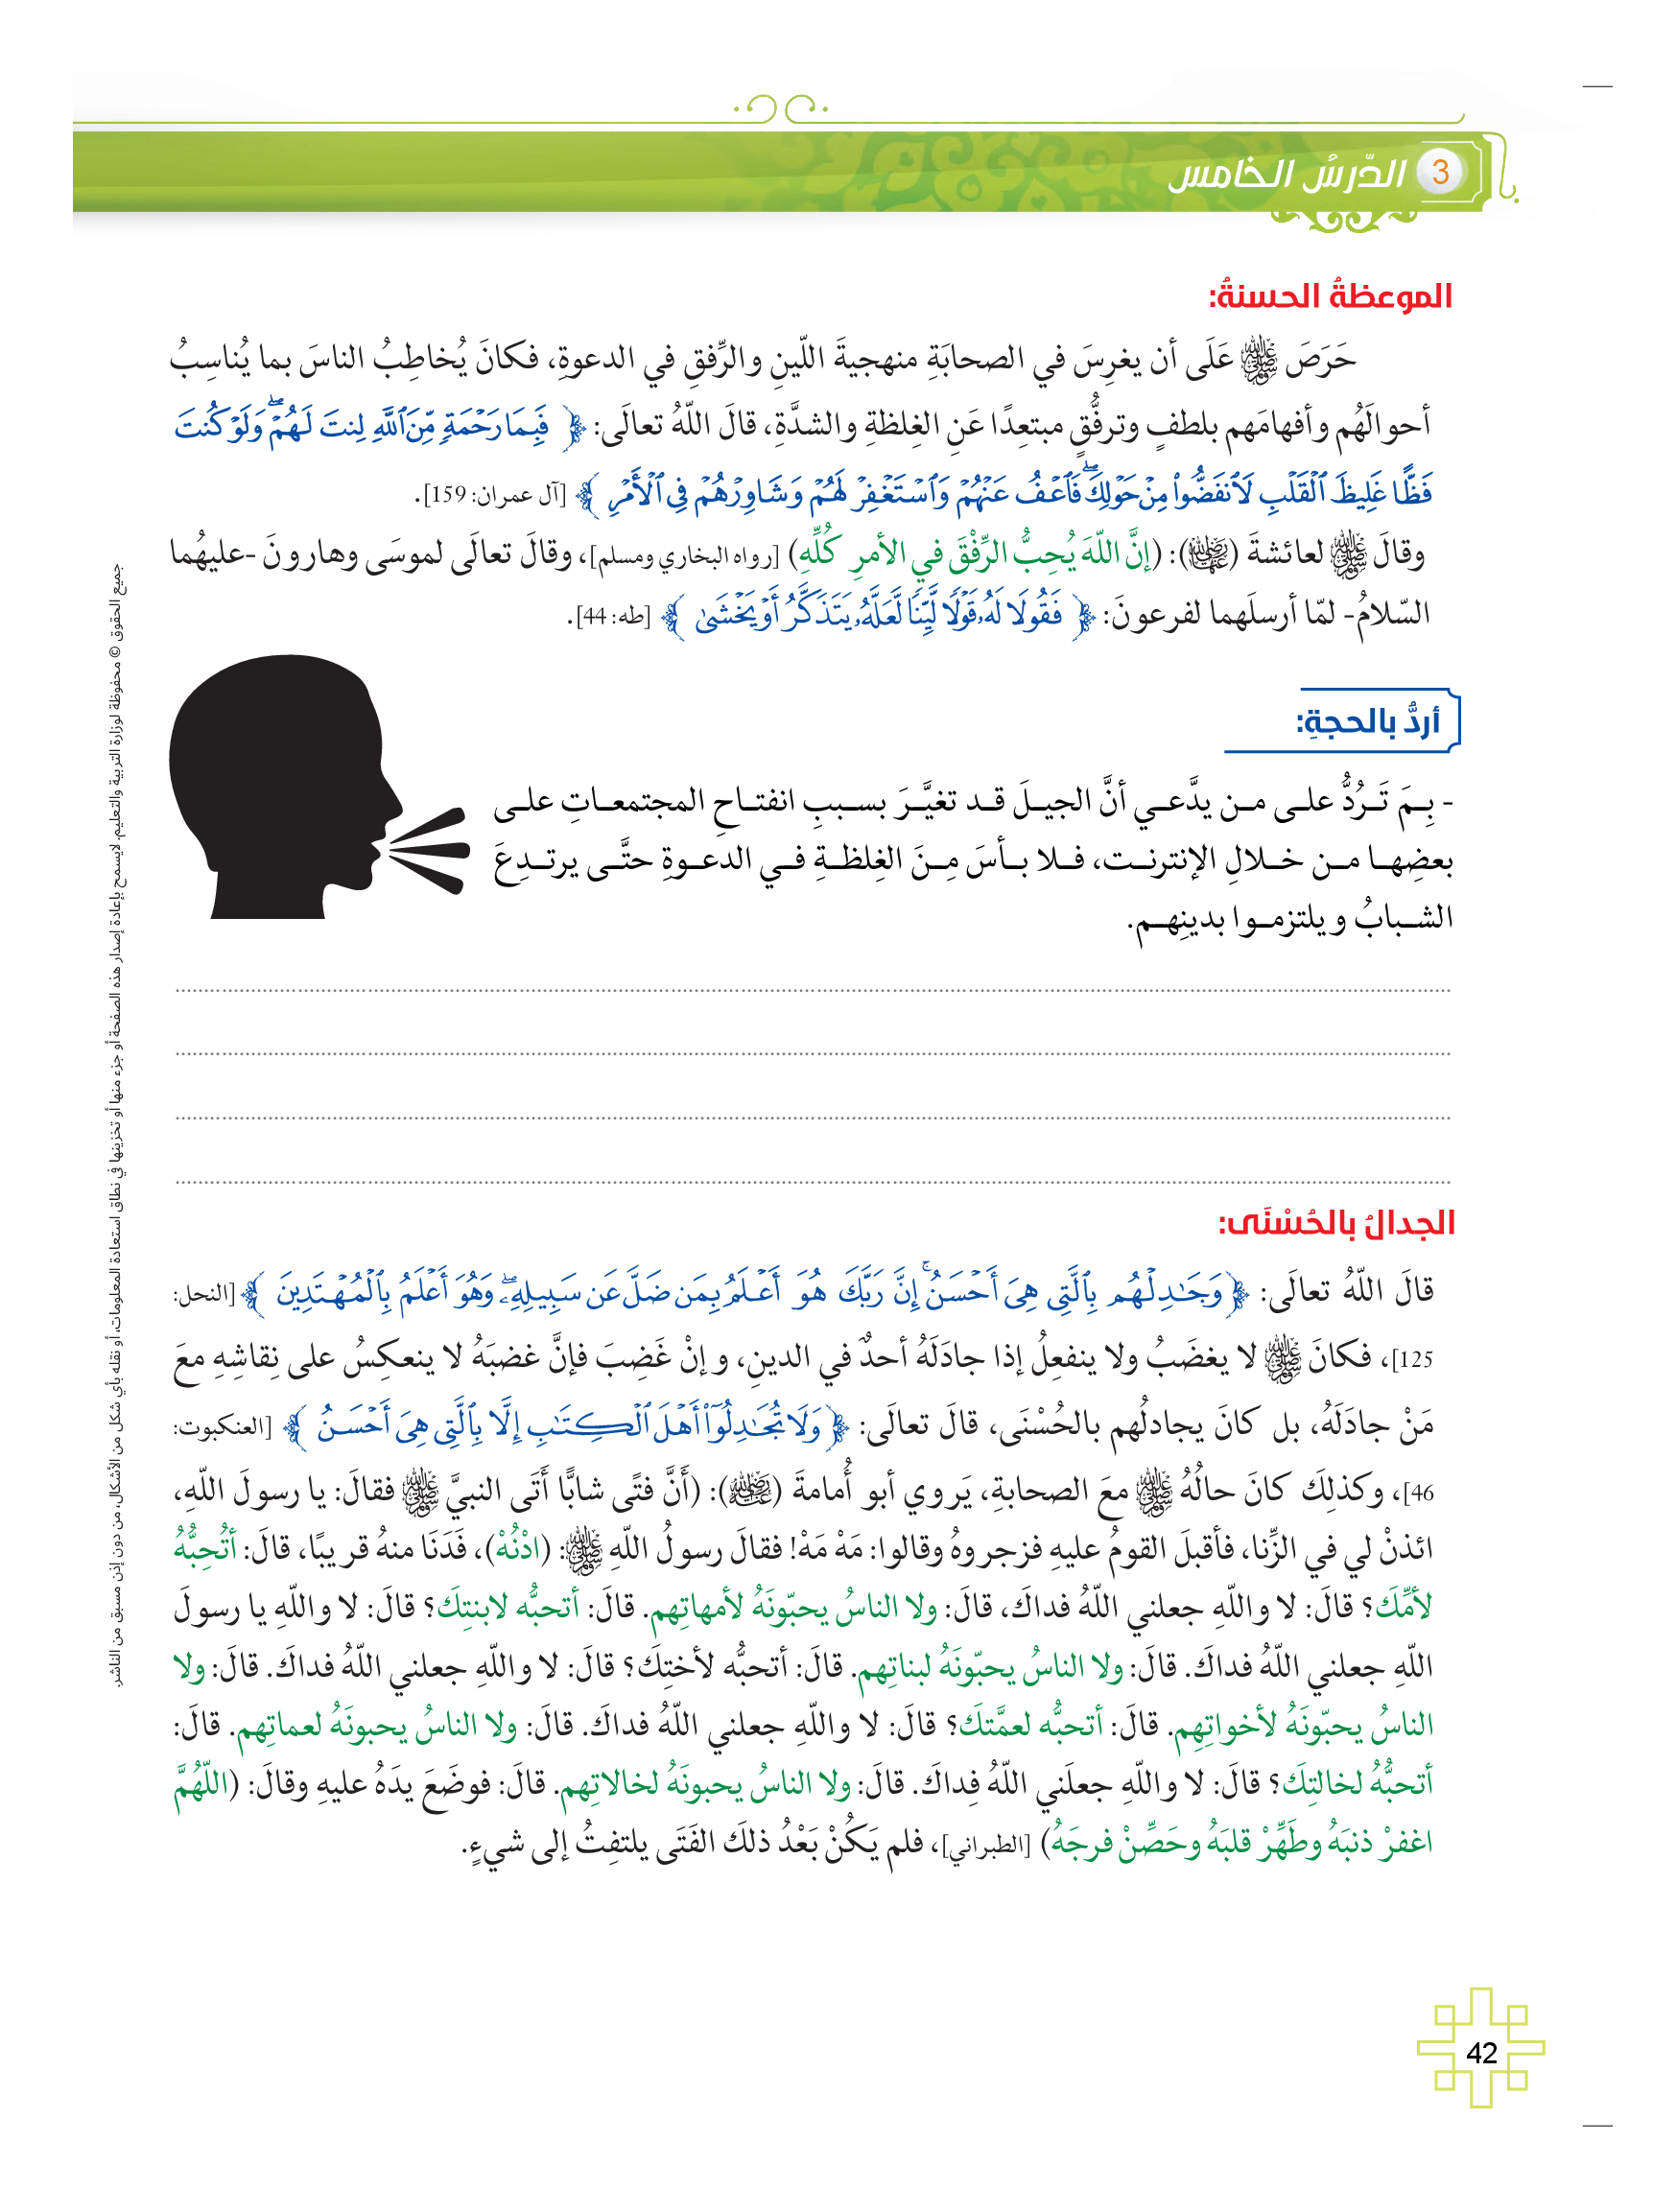 3 الدّرسُ الخامس
الموعظةُ الحسنةُ:
حَرَصَ ﷺ عَلَى أن يغرِسَ في الصحابَةِ منهجيةَ اللّينِ والرِّفقِ في الدعوةِ، فكانَ يُخاطِبُ الناسَ بما يُناسِبُ
أحوالَهُم وأفهامَهم بلطفٍ وترفُّقٍ مبتعِدًا عَنِ الغِلظةِ والشدَّةِ، قالَ اللّهُ تعالَى: ﴿ فَبِمَا رَحْمَةٍ مِّنَ ٱللَّهِ لِنتَ لَهُمْ ۖ وَلَوْ كُنتَ
فَظًّا غَلِيظَ ٱلْقَلْبِ لَٱنفَضُّوا۟ مِنْ حَوْلِكَ ۖ فَٱعْفُ عَنْهُمْ وَٱسْتَغْفِرْ لَهُمْ وَشَاوِرْهُمْ فِى ٱلْأَمْرِ ﴾ [آل عمران: 159].
وقالَ ﷺ لعائشةَ (رضي الله عنها): (إنَّ اللّهَ يُحِبُّ الرِّفْقَ في الأمرِ كُلِّهِ) [رواه البخاري ومسلم]، وقالَ تعالَى لموسَى وهارونَ -عليهُما
السّلامُ- لمّا أرسلَهما لفرعونَ: ﴿ فَقُولَا لَهُۥ قَوْلًا لَّيِّنًا لَّعَلَّهُۥ يَتَذَكَّرُ أَوْ يَخْشَىٰ ﴾ [طه: 44].
أردُّ بالحجةِ:
- بِمَ تَرُدُّ على من يدَّعي أنَّ الجيلَ قد تغيَّرَ بسببِ انفتاحِ المجتمعاتِ على
بعضِها من خلالِ الإنترنت، فلا بأسَ مِنَ الغِلظةِ في الدعوةِ حتَّى يرتدِعَ
الشبابُ ويلتزموا بدينِهم.
الجدالُ بالحُسْنَى:
قالَ اللّهُ تعالَى: ﴿ وَجَٰدِلْهُم بِٱلَّتِى هِىَ أَحْسَنُ ۚ إِنَّ رَبَّكَ هُوَ أَعْلَمُ بِمَن ضَلَّ عَن سَبِيلِهِۦ ۖ وَهُوَ أَعْلَمُ بِٱلْمُهْتَدِينَ ﴾ [النحل:
125]، فكانَ ﷺ لا يغضَبُ ولا ينفعِلُ إذا جادَلَهُ أحدٌ في الدينِ، وإنْ غَضِبَ فإنَّ غضبَهُ لا ينعكِسُ على نِقاشِهِ معَ
مَنْ جادَلَهُ، بل كانَ يجادلُهم بالحُسْنَى، قالَ تعالَى: ﴿ وَلَا تُجَٰدِلُوٓا۟ أَهْلَ ٱلْكِتَٰبِ إِلَّا بِٱلَّتِى هِىَ أَحْسَنُ ﴾ [العنكبوت:
46]، وكذلِكَ كانَ حالُهُ ﷺ معَ الصحابةِ، يَروي أبو أُمامةَ (رضي الله عنه): (أَنَّ فتًى شابًّا أَتَى النبيَّ ﷺ فقالَ: يا رسولَ اللّهِ،
ائذنْ لي في الزّنا، فأقبلَ القومُ عليهِ فزجروهُ وقالوا: مَهْ مَهْ! فقالَ رسولُ اللّهِ ﷺ: (ادْنُهْ)، فَدَنَا منهُ قريبًا، قالَ: أتُحِبُّهُ
لأمِّكَ؟ قالَ: لا واللّهِ جعلني اللّهُ فداكَ، قالَ: ولا الناسُ يحبّونَهُ لأمهاتِهم. قالَ: أتحبُّه لابنتِكَ؟ قالَ: لا واللّهِ يا رسولَ
اللّهِ جعلني اللّهُ فداكَ. قالَ: ولا الناسُ يحبّونَهُ لبناتِهم. قالَ: أتحبُّه لأختِكَ؟ قالَ: لا واللّهِ جعلني اللّهُ فداكَ. قالَ: ولا
الناسُ يحبّونَهُ لأخواتِهِم. قالَ: أتحبُّه لعمَّتكَ؟ قالَ: لا واللّهِ جعلني اللّهُ فداكَ. قالَ: ولا الناسُ يحبونَهُ لعماتِهم. قالَ:
أتحبُّهُ لخالتِكَ؟ قالَ: لا واللّهِ جعلَني اللّهُ فِداكَ. قالَ: ولا الناسُ يحبونَهُ لخالاتِهم. قالَ: فوضَعَ يدَهُ عليهِ وقالَ: (اللّهُمَّ
اغفرْ ذنبَهُ وطَهِّرْ قلبَهُ وحَصِّنْ فرجَهُ) [الطبراني]، فلم يَكُنْ بَعْدُ ذلكَ الفَتَى يلتفِتُ إلى شيءٍ.
جميع الحقوق © محفوظة لوزارة التربية والتعليم. لايسمح بإعادة إصدار هذه الصفحة أو جزء منها أو تخزينها في نطاق استعادة المعلومات، أو نقله بأي شكل من الأشكال، من دون إذن مسبق من الناشر.
42